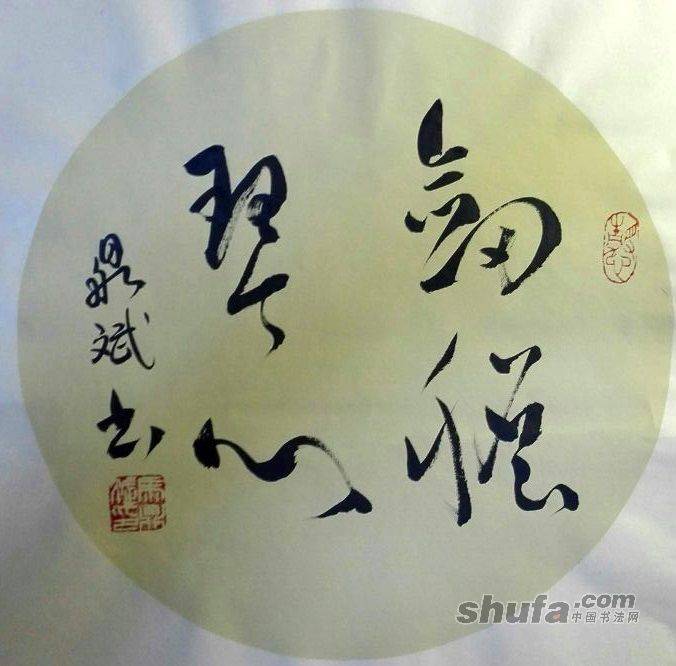 劍膽
琴心
斌书
shufa.com
中国书法网